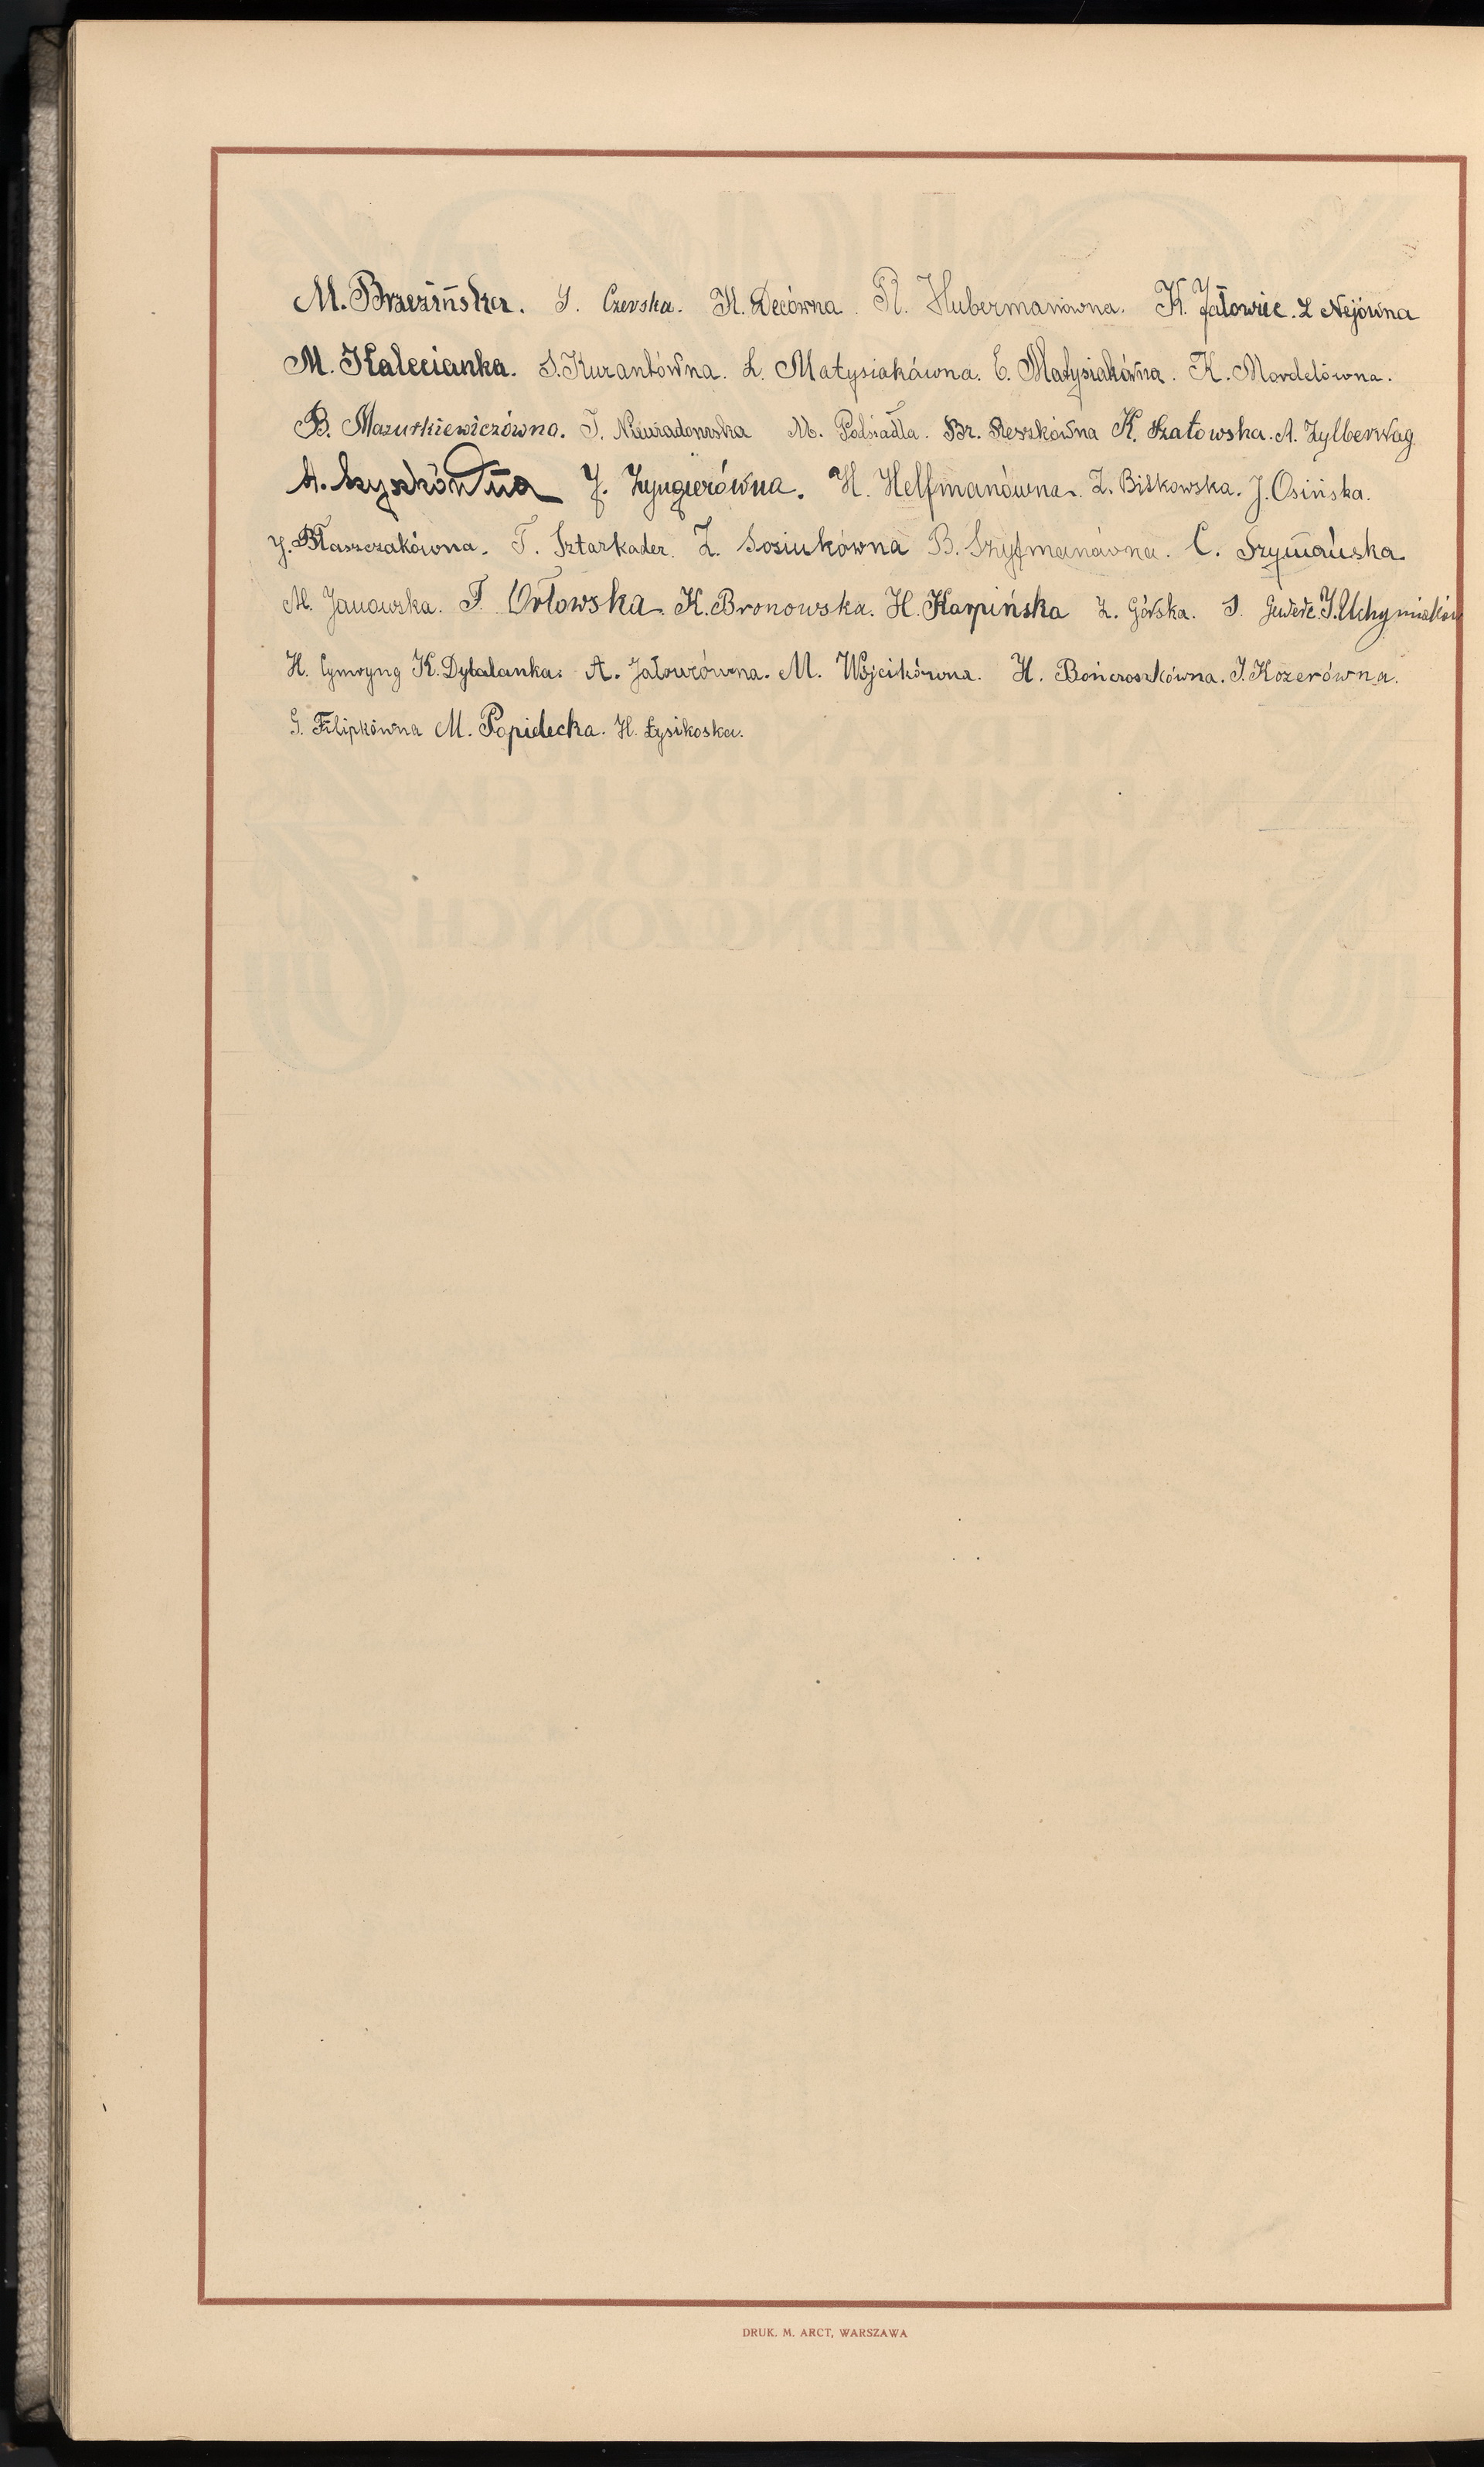 M. Brzezińska. J. Czerska. H. Decówna. R. Hubermanówna. K. Jałowiec. Z Nejówna
M. Kalecianka. S. Kurantówna. L. Matysiakówna. E. Matysiakówna. K. Mordelówna.
B. Mazurkiewiczówna. J. Nieuradowska M. Podsiadła. Br. Reszkówna K. Szatowska. A. Zylberwag
A. Szyszkówna J. Zyngierówna. H. Helfmanówna. Z. Bitkowska. J. Osińska.
J. Błaszczakówna. T. Sztarkader. Z. Sosiukówna B. Szyfmanówna. C. Szymańska
M. Janowska. F. Orłowska. K. Bronowska. H. Karpińska Z. Górska. S. J. Uchymiaków
H. Cymryng K. Dybalanka. A. Jałowcówna. M. Wójcikówna. H. Bończoszkówna. J. Kozerówna.
G. Filipkówna M. Popidecka. H. Łysikoska.
DRUK. M. ARCT, WARSZAWA